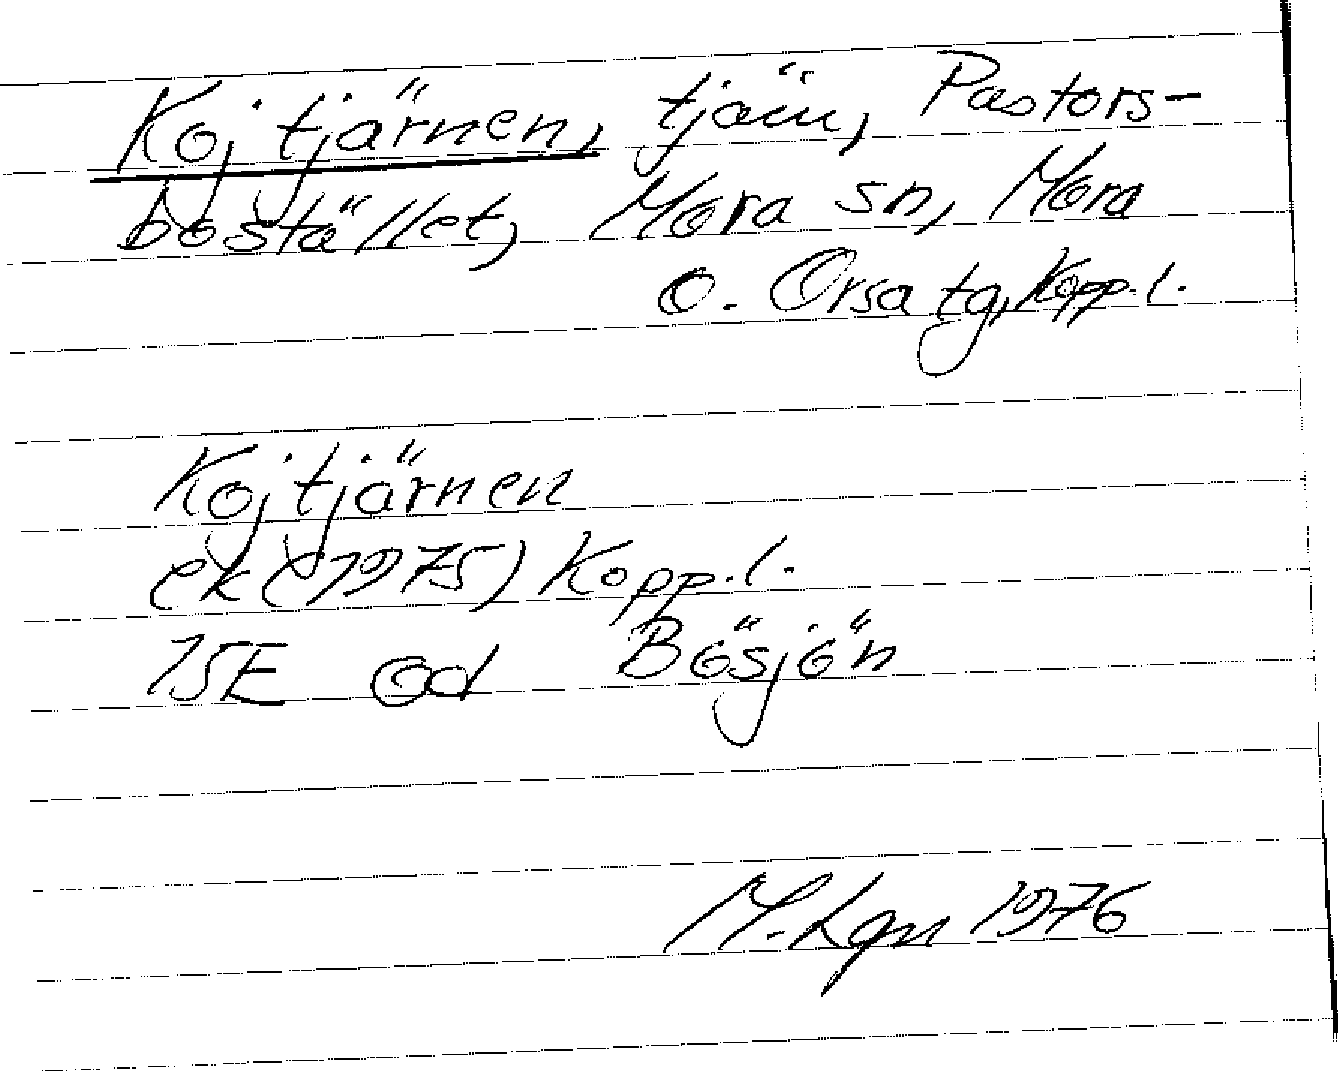 Kojtjärnen, tjärn, Pastors-
bostället, Mora sn, Mora
o. Orsa tg, Kopp.l.
Kojtjärnen
ek (1975) Kopp.l.
15E 0d Bösjön
M. Lgn 1976